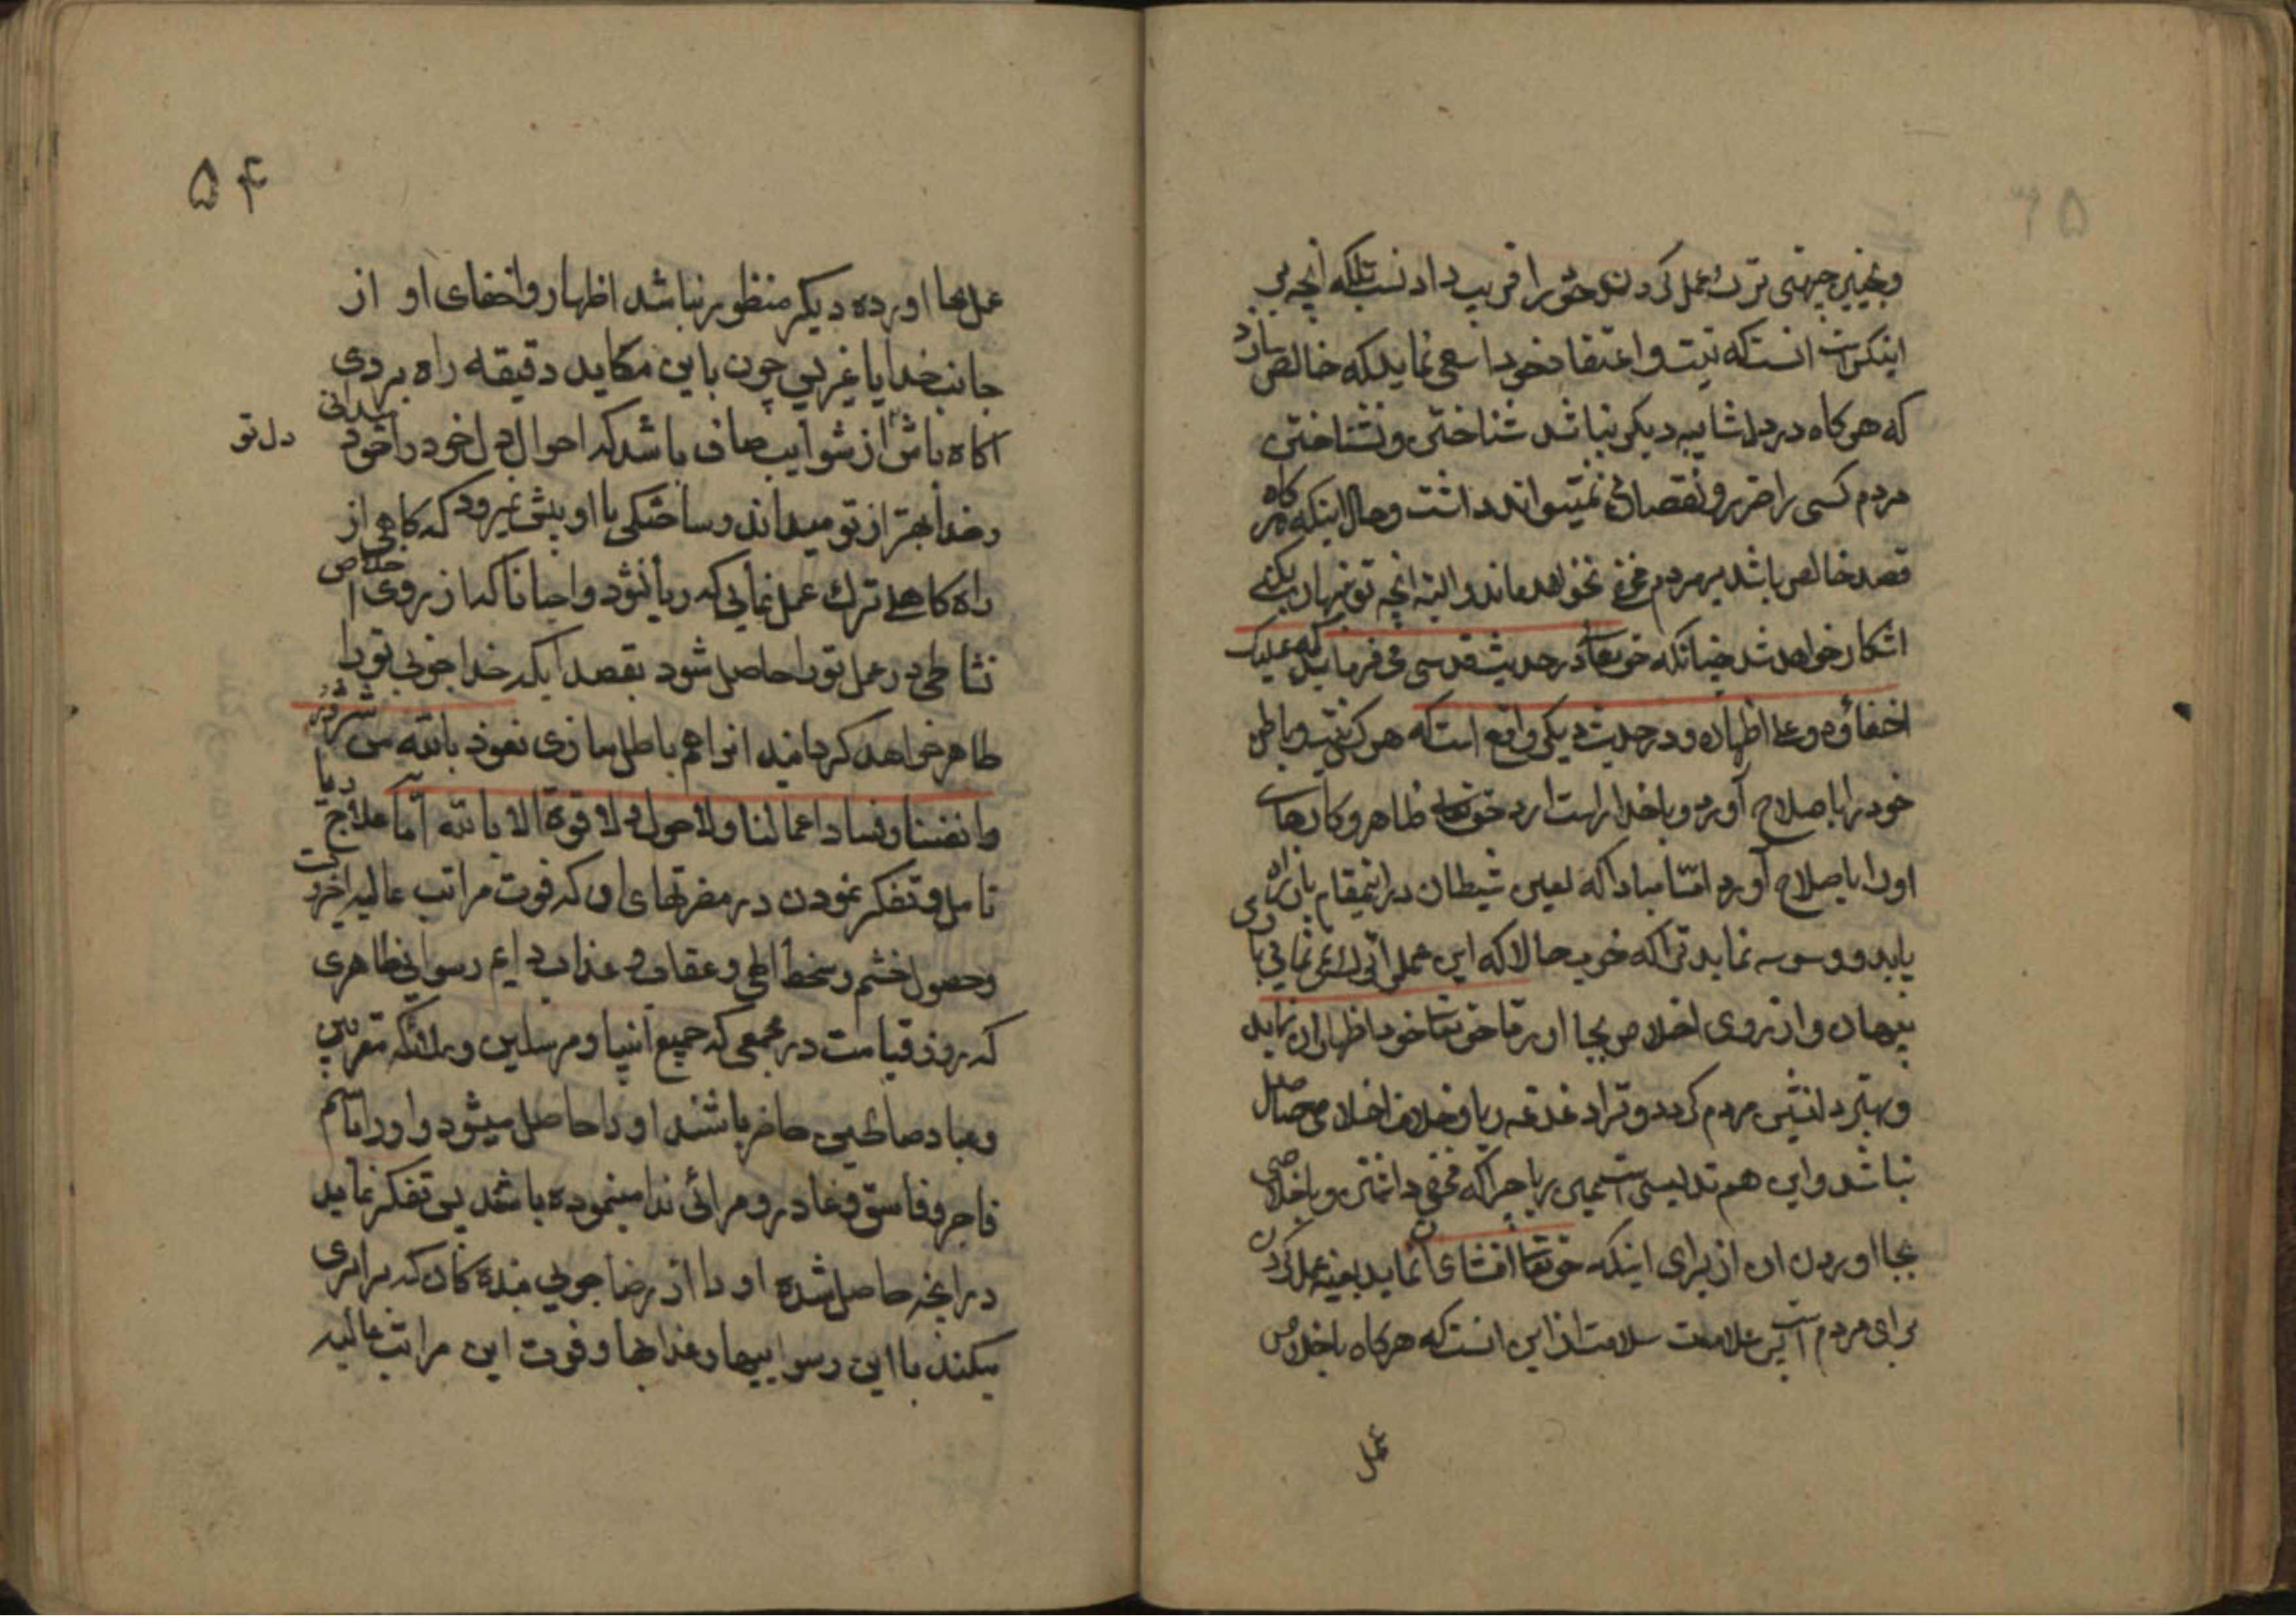 وبچنین جهتی ترک عمل کردن خود را فریب دادنست بلکه انچه بر
اینکس است انستکه نیت و اعتقاد خود را سعی نماید که خالص سازد
که هرکاه در دل شایبه دیکر نباشد شناختن و نشناختن
مردم کسی را ضرر و نقصانی نمیتواند داشت و حال اینکه هرکاه
قصد خالص باشد بر مردم مخفی نخواهد ماند و البته انچه تو پنهان بکنی
اشکار خواهد شد چنانکه حقتعالی در حدیث قدسی می فرماید که علیک
اخفاؤه و علی اظهاره و در حدیث دیکر واقع است که هرکس نیت و باطن
خود را باصلاح آورد و با خدا راست ارد حقتعالی ظاهر و کارهای
او را باصلاح آورد امّا مبادا که لعین شیطان در اینمقام باز راه
یابد و وسوسه نماید ترا که خوب حالا که این عمل را میکنی
پنهان و از روی اخلاص بجا اور تا حقتعالی خود اظهار ان نماید
و بهتر دلنشین مردم کردد و ترا دغدغه ریا و خلاف اخلاص حاصل
نباشد و این هم تدلیس است همین ریا چرا که مخفی داشتن و باخلاص
بجا اوردن ان از برای اینکه حقتعالی افشای ان نماید بعینه عمل کردن
برای مردم است پس علامت سلامت از این انست که هرکاه باخلاص
عمل
۵۴
عمل بجا اورده دیکر منظور نباشد اظهار و اخفای او از
جانب خدا یا غیر پس چون باین مکاید دقیقه راه بردی
اکاه باش از شوایب صاف باشد که احوال دل خود را خود میدانی
دل تو
و خدا بهتر از تو میداند و ساختکی با او پیش نمیرود که کاهی از
راه کاهلی ترک عمل نمایی که ریا نشود و احیانا که از روی اخلاص
نشاطی در عمل تو را حاصل شود بقصد اینکه خدا خوبی تو را
ظاهر خواهد کردانید انرا هم باطل سازی نعوذ بالله من شرور
وانفسنا وفساد اعمالنا ولا حول ولا قوة الا بالله امّا علاج ریا
تامل و تفکر نمودن در مضرتهای او که فوت مراتب عالیه اخروت
و حصول خشم و سخط الهی و عقاب و عذاب دایم رسوایی ظاهری
که روز قیامت در مجمعی که جمیع انبیا و مرسلین و ملائکه مقربین
و عباد صالحین حاضر باشند او را حاصل میشود و او را باسم
فاجر و فاسق و غادر و مرائی ندا مینموده باشند پس تفکر نماید
در انچه حاصل شده او را از رضا جویی بنده کان که برابری
میکند با این رسواییها و عذابها و فوت این مراتب عالیه